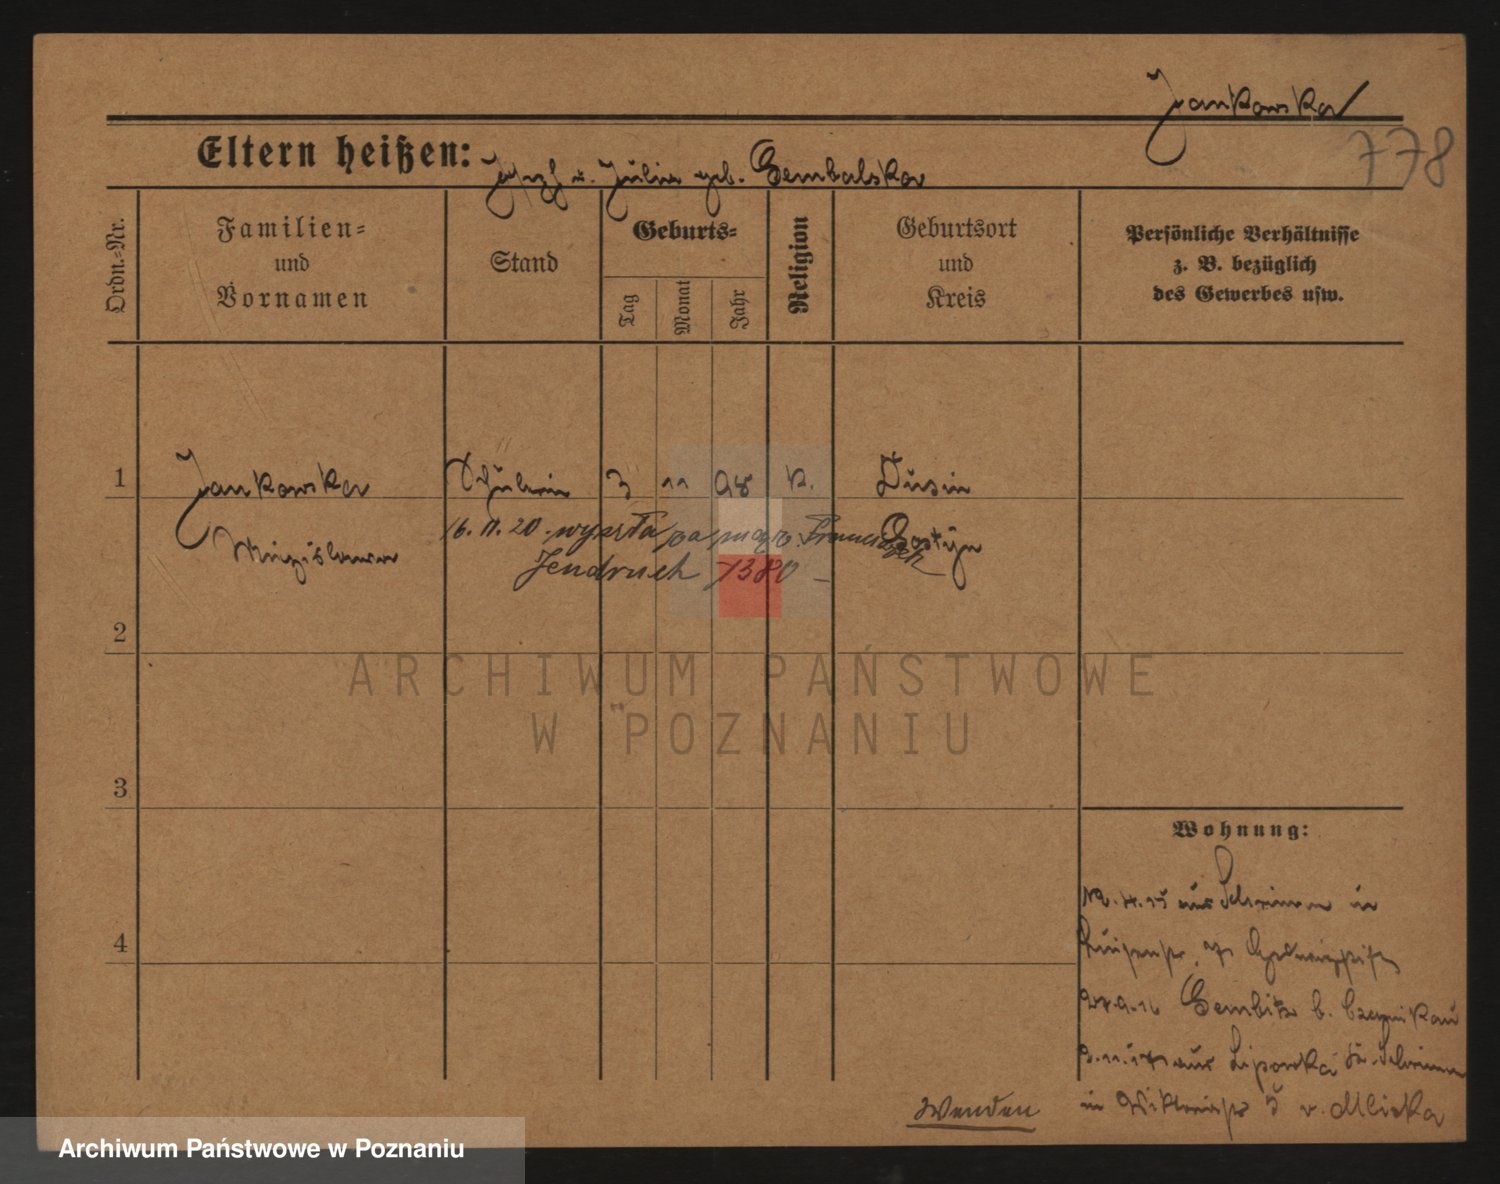 Jankowska
778
Eltern heißen: Josef u. Julia geb. Gembalska
Ordn.-Nr.
Familien-
und
Vornamen
Stand
Geburts-
Tag
Monat
Jahr
Religion
Geburtsort
und
Kreis
Persönliche Verhältnisse
z. B. bezüglich
des Gewerbes usw.
1
Jankowska Schülerin 3 11 98 k. Dusin
16.11.20 wyszła za mąż Franciszek
Gostyn
Jendruch 1380 –
2
ARCHIWUM PAŃSTWOWE
W POZNANIU
3
Wohnung:
aus Schrimm in
4
Gembitz b. Czarnikau
aus Lipowka Kr. Schrimm
in Viktoriastr. 5 v. Mlicka
Wenden
Archiwum Państwowe w Poznaniu